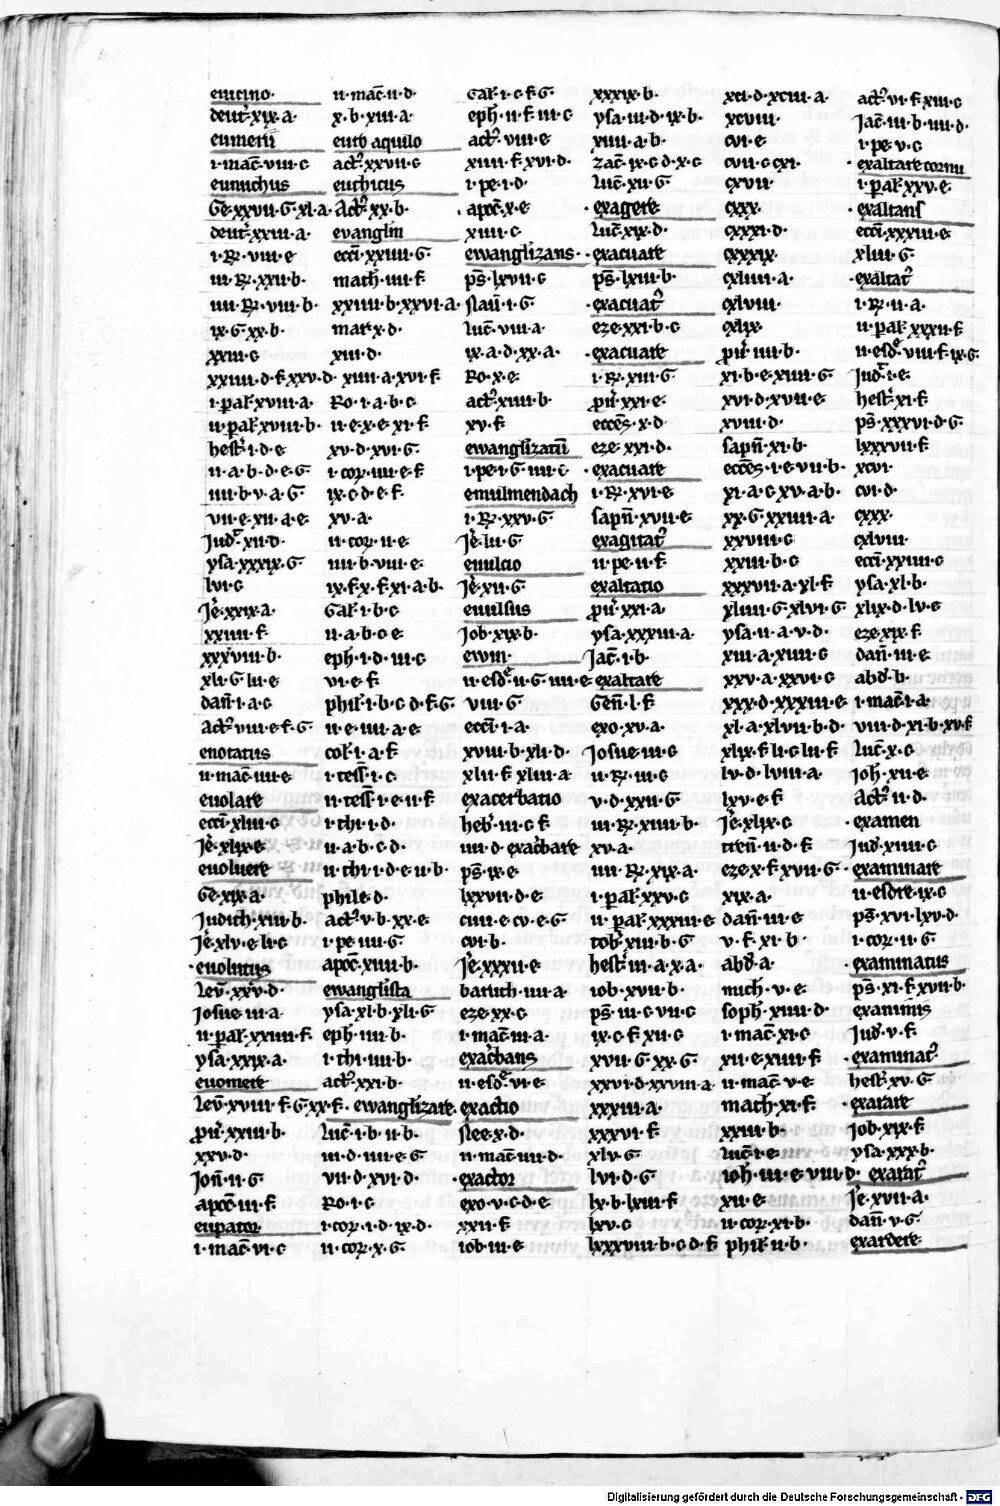 euicino·
deut̛·xix·a·
eumenii
i·mac̄·viii·c
eunuchus
Ge·xxvii·G·xl·a·
deut̛·xxiii·a·
i·R̛·viii·e
iii·R̛·xxii·b·
iiii·R̛·viii·b·
ix·G·xx·b·
xxiii·c
xxiiii·d·f·xxv·d·
i·pal̛·xviii·a·
ii·pal̛·xviii·b·
hest̛·i·d·e
ii·a·b·d·e·G
iiii·b·v·a·G
vii·e·xii·a·e·
Jud̛·xii·d·
ysa·xxxix·G
lvi·c
Je̛·xxix·a·
xxiiii·f·
xxxviii·b·
xli·G·lii·e
dan̄·i·a·c
act̛·viii·e·f·G
enotatus
ii·mac̄·iiii·e
euolare
ecc̄i·xliii·c
Je̛·xlix·e
euoluere
Ge·xix·a·
Judith·xiii·b·
Je̛·xlv·e·li·c
·euolutus
Leu̅·xxv·d·
Josue·iii·a
ii·pal̛·xxiiii·f
ysa·xxix·a·
euomere
Leu̅·xviii·f·G·xx·f·
pư·xxiii·b·
xxv·d·
Jon̄·ii·G
apoc̄·iii·f
eupator
i·mac̄·vi·c
ii·mac̄·ii·d·
x·b·xiii·a·
euro aquilo
act̛·xxvii·c
euthicus
Act̛·xx·b·
evanglm̄
ecc̄i·xxiiii·G·
math̄·iiii·f
xxiiii·b·xxvi·a·
mar·x·d·
xiii·d·
xiiii·a·xvi·f
Ro·i·a·b·c
ii·e·x·e·xi·f
xv·d·xvi·G·
i·cor̛·iiii·e·f
ix·c·d·e·f·
xv·a·
ii·cor̛·ii·e
iiii·b·viii·e·
ix·f·x·f·xi·a·b·
Gal̛·i·b·c
ii·a·b·c·e
eph̄·i·d·iii·c
vi·e·f
phil̛·i·b·c·d·f·G
ii·e·iii·a·e
col̛·i·a·f
i·tess̄·i·c
ii·tess̄·i·e·ii·f
i·thi·i·d·
ii·a·b·c·d·
ii·thi·i·d·e·ii·b·
phile·d·
act̛·v·b·xx·e·
i·pe·iiii·G·
apoc̄·xiiii·b·
ewanglista
ysa·xl·b·xli·G·
eph̄·iiii·b·
i·thi·iiii·b·
act̛·xxi·b·
·ewanglizare·
Luc̄·i·b·ii·b·
iii·d·iiii·e·G
vii·d·xvi·d·
Ro·i·c
i·cor̛·i·d·ix·d·
ii·cor̛·x·G·
Gal̛·i·c·f·G·
eph̄·ii·f·iii·c
act̛·viii·e
xiiii·f·xvi·d·
i·pe·i·d·
·apoc̄·x·e
xiiii·c
ewanglizans·
ps̄·lxvii·c
Nau̅·i·G·
luc̄·viii·a·
ix·a·d·xx·a·
Ro·x·e
act̛·xiiii·b·
xv·f
ewanglizatū
i·pe·i·G·iiii·c
emulmendach
i·R̛·xxv·G·
Je̛·lii·G
euulcio
Je̛·xii·G
euulsus
Job·xix·b·
ewm·
ii·esd̛·ii·G·iiii·e
viii·G
ecc̄i·i·a·
xviii·b·xli·d·
xlii·f·xliii·a
exacerbatio
heb̛·iii·c·f
iiii·d·exac̛bare
ps̄·ix·e·
lxxvii·d·e
ciiii·e·cv·e·G
cvi·b·
Je̛·xxxii·e
baruch·iiii·a
eze·xx·c
i·mac̄·iii·a
exac̛bans
ii·esd̛·vi·e
exactio
Nee·x·d·
ii·mac̄·iiii·d·
·exactor
exo·v·c·d·e
xxii·f
iob·iii·e
xxxix·b·
ysa·iii·d·ix·b·
xiiii·a·b·
zac̄·ix·c·d·x·c
luc̄·xii·G
·exagere
Luc̄·xix·d·
·exacuare
ps̄·lxiii·b·
·exacuat̛
eze·xxi·b·c
·exacuare
i·R̛·xiii·G·
pư·xxi·e·
ecc̄es·x·d
eze·xxi·d·
·exacuare
i·R̛·xvi·e
sapn̄·xvii·e
exagitat̛
ii·pe·ii·f
exaltatio
pư·xxi·a
ysa·xxxiii·a·
Jac̄·i·b·
exaltare
Gen̄·l·f
exo·xv·a·
Josue·iii·c
ii·R̛·iii·c
v·d·xxii·G
iii·R̛·xiiii·b·
xv·a·
iiii·R̛·xix·a
i·pal̛·xxv·c
ii·pal̛·xxxiii·e
tob̛·xiii·b·G
hest̛·iii·a·x·a·
iob·xvii·b·
ps̄·iii·c·vii·c
ix·c·f·xii·c
xvii·G·xx·G·
xxvi·d·xxviii·a
xxxiii·a·
xxxvi·f
xlv·G
lvi·d·G
lx·b·lxiii·f
lxv·c
lxxxviii·b·c·d·f
xci·d·xciii·a·
xcviii·
cvi·e
cvii·c·cxi·
cxvii·
cxxx·
cxxxi·d·
cxxxix·
cxliiii·a·
cxlviii·
cxlix·
pư·iiii·b·
xi·b·e·xiiii·G
xvi·d·xvii·e
xviii·d·
sapn̄·xi·b·
ecc̄es·i·e·vii·b·
xi·a·c·xv·a·b·
xx·G·xxiiii·a·
xxviii·c
xxiii·b·c
xxxvii·a·xl·f
xliiii·G·xlvi·G
ysa·ii·a·v·d·
xiii·a·xiiii·c
xxv·a·xxvi·c
xxx·d·xxxiii·e
xl·a·xlvii·b·d·
xlix·f·li·c·lii·f
lv·d·lviii·a·
lxv·e·f
Je̛·xlix·c
tren̄·ii·d·f
eze·x·f·xvii·G·
xix·a·
dan̄·iii·e
v·f·xi·b·
abd̛·a·
mich·v·e·
soph̄·xiiii·d·
i·mac̄·xi·c
xii·e·xiiii·f
ii·mac̄·v·e
math·xi·f·
xxiii·b·
Luc̄·i·e
ioh̄·iii·e·viii·d·
xii·e·
ii·cor̛·xi·b·
phil̛·ii·b·
act̛·vi·f·xiii·c
Jac̄·iii·b·iiii·d·
i·pe·v·c
·exaltare cornu
i·pal̛·xxv·e
·exaltans
ecc̄i·xxxiii·e
xliii·G·
·exaltat̛
i·R̛·ii·a·
ii·pal̛·xxxii·f
ii·esd̛·viii·f·ix·G·
Jud̛·i·e·
hest̛·xi·f
ps̄·xxxvi·d·G
lxxxvii·f
xcvi·
cvi·d·
cxxx·
cxlviii·
ecc̄i·xxiiii·c
ysa·xl·b·
xlix·d·lv·c
eze·xix·f
dan̄·iii·e
abd̛·b·
i·mac̄·i·a·
viii·d·xi·b·xv·f
Luc̄·x·c
Joh̄·xii·e
Act̛·ii·d·
·examen
Jud̛·xiiii·c
·examinare
ii·esdre·ix·c
ps̄·xvi·lxv·d·
i·cor̛·ii·G·
·examinatus
ps̄·xi·f·xvii·b·
examinis
Jud̛·v·f
·examinat̛
hest̛·xv·G
·exarare
Job·xix·f
ysa·xxx·b·
exarat̛
Je̛·xvii·a·
dan̄·v·G
exardere·
Digitalisierung gefördert durch die Deutsche Forschungsgemeinschaft - DFG